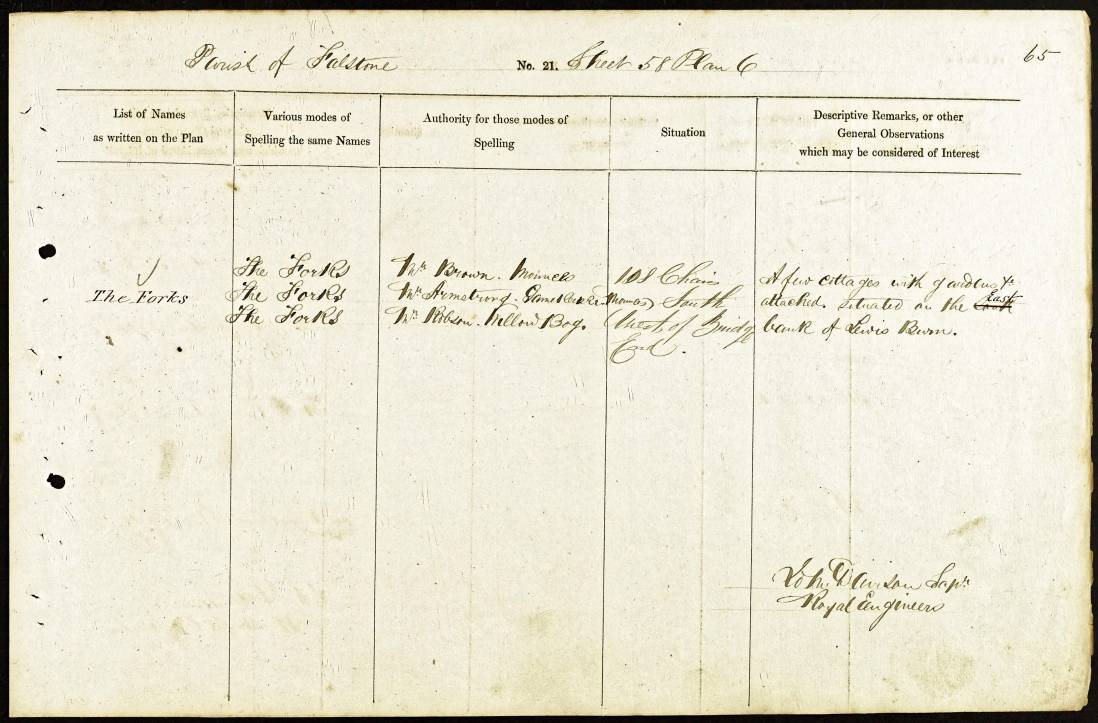 Parish of Falstone No. 21. Sheet 58 Plan 6 65
List of Names
as written on the Plan
Various modes of
Spelling the same Names
Authority for those modes of
Spelling
Situation
Descriptive Remarks, or other
General Observations
which may be considered of Interest
The Forks
The Forks
The Forks
The Forks
Mr. Brown.
Mr. Armstrong. Gamekeeper
Mr. Robson. Willow Bog.
108 Chains
South
West of Bridge
End.
A few cottages with gardens &c
attached. situated on the East
bank of Lewis Burn.
John Davison Sapr
Royal Engineers